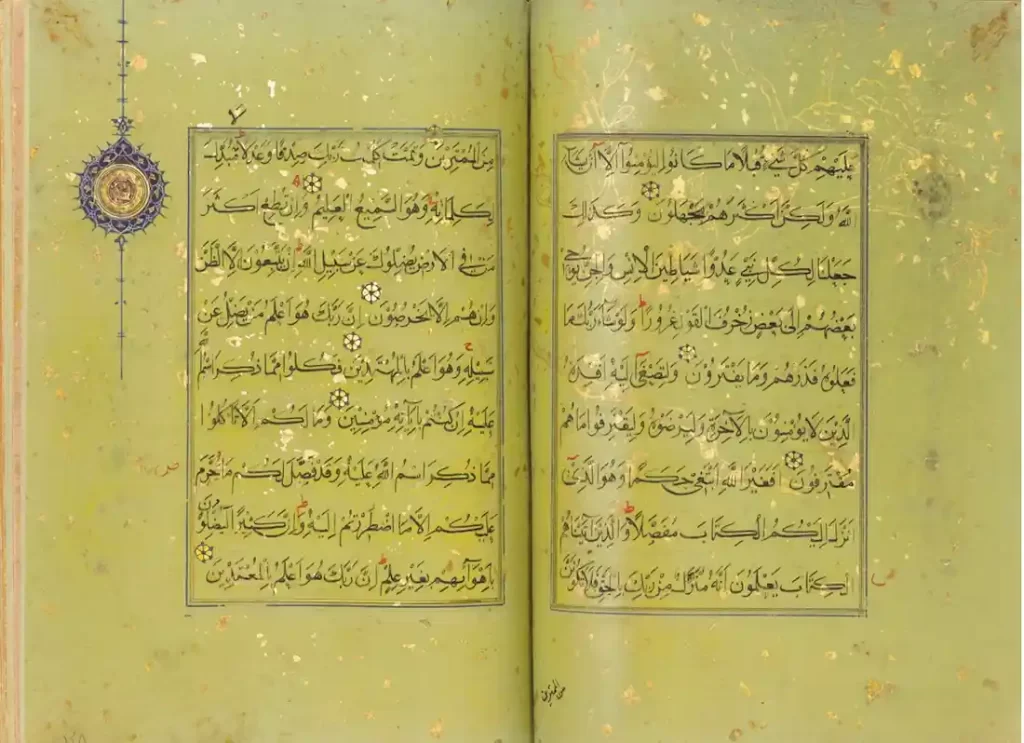 عَلَيْهِمْ كُلَّ شَيْءٍ قُبُلًا مَا كَانُوا لِيُؤْمِنُوا اِلَّا اَنْ يَشَآءَ
اللّٰهُ وَلٰكِنَّ اَكْثَرَهُمْ يَجْهَلُونَ وَكَذٰلِكَ
جَعَلْنَا لِكُلِّ نَبِيٍّ عَدُوًّا شَيَاطِينَ الْاِنْسِ وَالْجِنِّ يُوحِي
بَعْضُهُمْ اِلٰى بَعْضٍ زُخْرُفَ الْقَوْلِ غُرُورًا وَلَوْ شَآءَ رَبُّكَ مَا
فَعَلُوهُ فَذَرْهُمْ وَمَا يَفْتَرُونَ وَلِتَصْغٰٓى اِلَيْهِ اَفْئِدَةُ
الَّذِينَ لَا يُؤْمِنُونَ بِالْاٰخِرَةِ وَلِيَرْضَوْهُ وَلِيَقْتَرِفُوا مَا هُمْ
مُقْتَرِفُونَ اَفَغَيْرَ اللّٰهِ اَبْتَغِي حَكَمًا وَهُوَ الَّذِيٓ
اَنْزَلَ اِلَيْكُمُ الْكِتَابَ مُفَصَّلًا وَالَّذِينَ اٰتَيْنَاهُمُ
الْكِتَابَ يَعْلَمُونَ اَنَّهُ مُنَزَّلٌ مِنْ رَبِّكَ بِالْحَقِّ فَلَا تَكُونَنَّ
من الممترين
مِنَ الْمُمْتَرِينَ وَتَمَّتْ كَلِمَتُ رَبِّكَ صِدْقًا وَعَدْلًا لَا مُبَدِّلَ
لِكَلِمَاتِهِ وَهُوَ السَّمِيعُ الْعَلِيمُ وَاِنْ تُطِعْ اَكْثَرَ
مَنْ فِي الْاَرْضِ يُضِلُّوكَ عَنْ سَبِيلِ اللّٰهِ اِنْ يَتَّبِعُونَ اِلَّا الظَّنَّ
وَاِنْ هُمْ اِلَّا يَخْرُصُونَ اِنَّ رَبَّكَ هُوَ اَعْلَمُ مَنْ يَضِلُّ عَنْ
سَبِيلِهِ وَهُوَ اَعْلَمُ بِالْمُهْتَدِينَ فَكُلُوا مِمَّا ذُكِرَ اسْمُ اللّٰهِ
عَلَيْهِ اِنْ كُنْتُمْ بِاٰيَاتِهِ مُؤْمِنِينَ وَمَا لَكُمْ اَلَّا تَاْكُلُوا
مِمَّا ذُكِرَ اسْمُ اللّٰهِ عَلَيْهِ وَقَدْ فَصَّلَ لَكُمْ مَا حَرَّمَ
عَلَيْكُمْ اِلَّا مَا اضْطُرِرْتُمْ اِلَيْهِ وَاِنَّ كَثِيرًا لَيُضِلُّونَ
بِاَهْوَآئِهِمْ بِغَيْرِ عِلْمٍ اِنَّ رَبَّكَ هُوَ اَعْلَمُ بِالْمُعْتَدِينَ